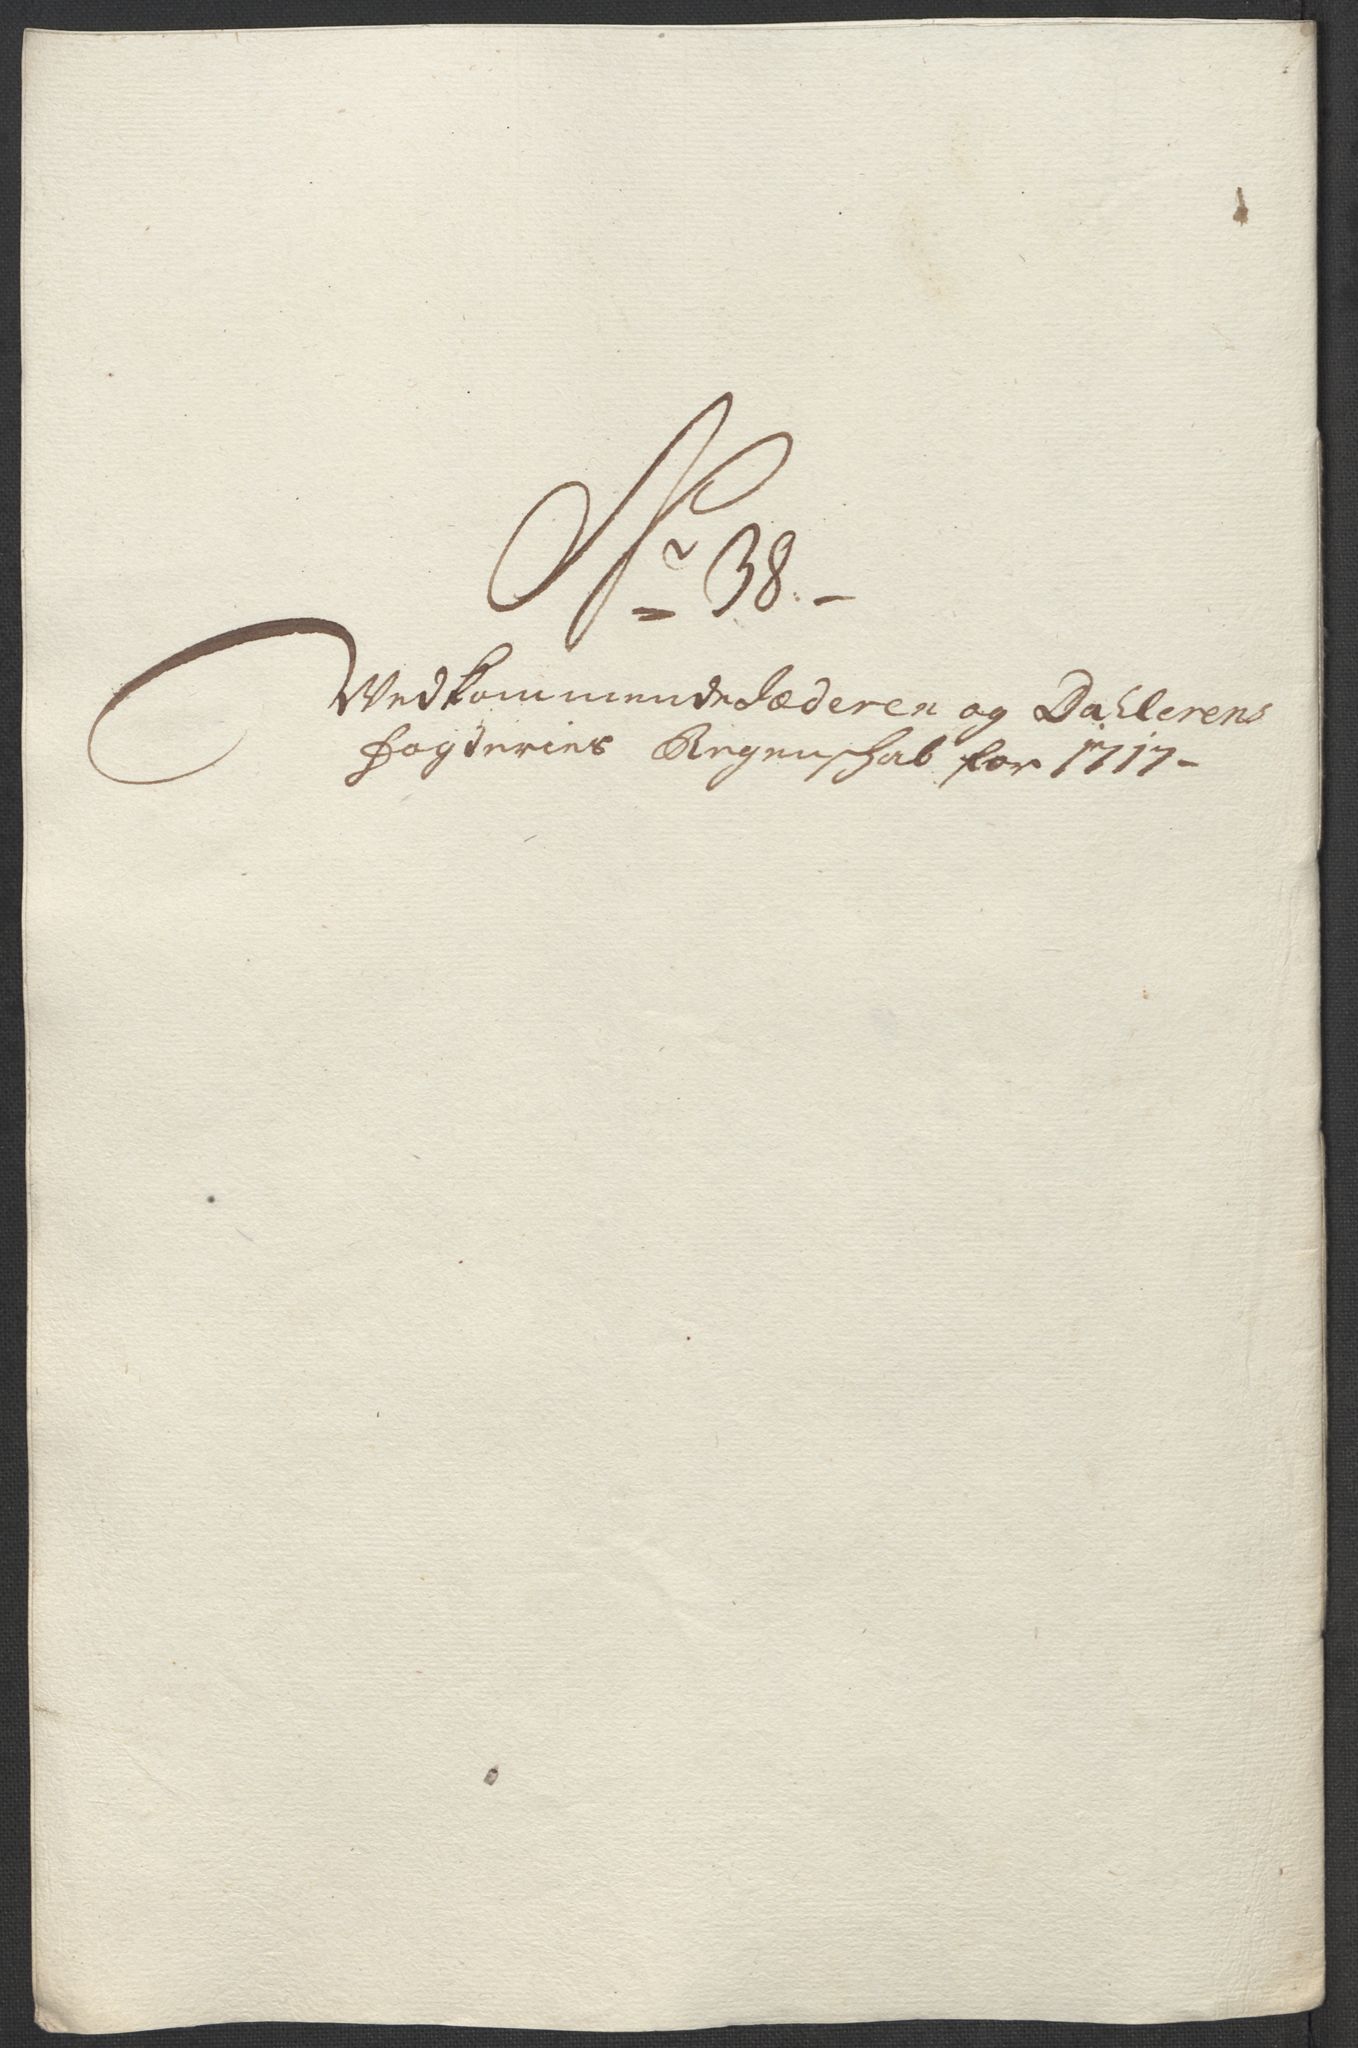 Nr 38. –
Vedkommende Jæderen og Dahlerens
fogderies Regenschab for 1717–